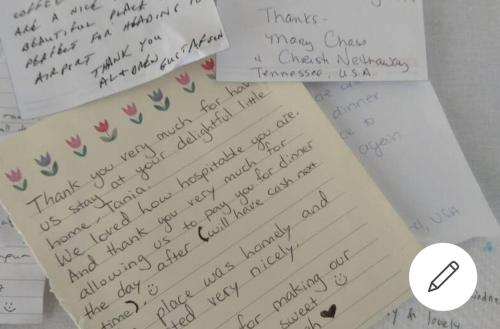 ARE A NICE
BEAUTIFUL PLACE
PERFECT FOR HEADING TO
AIRPORT THANK YOU
AL + DREW GUSTAFSON
Thanks-
Mary Chaw
& Christi
Tennessee, U.S.A.
dinner
to
again
USA
Thank you very much for hav
us stay at your delightful little
home, Tania.
We loved how hospitable you are.
And thank you very much for
allowing us to pay you for dinner
the day after (will have cash next
time). ☺
place was homely and
ted very nicely.
for making our
sweet ☺
& lovely